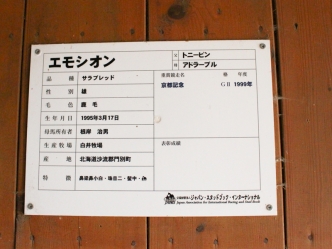 エモシオン
父 トニービン
母 アドラーブル
品種 サラブレッド
重賞競走名 格 年度
性別 雄
京都記念 GⅡ 1999年
毛色 鹿毛
生年月日 1995年3月17日
母馬所有者 根岸 治男
生産牧場 白井牧場
表彰成績
産地 北海道沙流郡門別町
特徴
ジャパン・スタッドブック・インターナショナル
Japan Association for International Racing and Stud Book